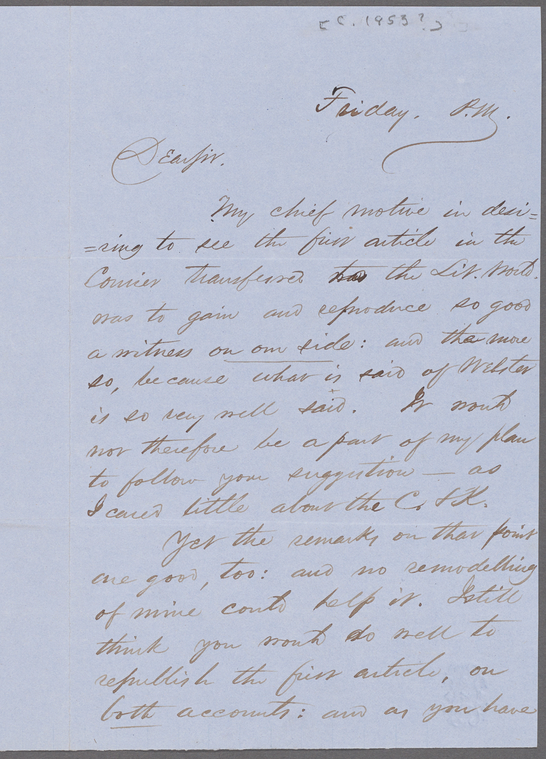 [C. 1953?]
Friday. P.M.
Dear Sir.
My chief motive in desi=
=ring to see the first article in the
Courier transferred to the Lit. World.
was to gain and reproduce so good
a witness on our side: and the more
so, because what is said of Webster
is so very well said. It would
not therefore be a part of my plan
to follow your suggestion — as
I cared little about the C. & K.
Yet the remarks on that point
are good, too: and no remodelling
of mine could help it. I still
think you would do well to
republish the first article, on
both accounts: and as you have